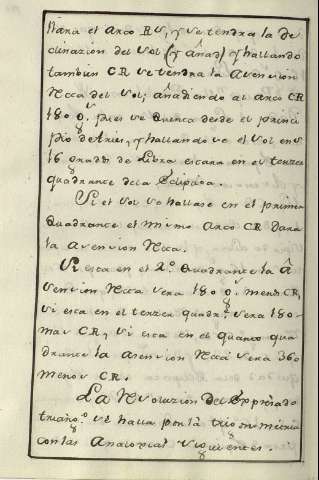 llara el Arco RS, y se tendra la de
clinazion del Sol (y añad) y hallando
tambien CR se tendra la Asension
Recta del Sol; añadiendo al arco CR
180 0. pues se quenta desde el princi
pio de Aries, y hallandose el Sol en
16 grads de Libra estara en el terzer
quadrante dela Ecliptica.
Si el Sol se hallase en el primer
quadrante el mismo Arco CR dara
la Asension Recta.
Si esta en el 2º. quadrante la A
sension Recta sera 180 0. menos CR,
si esta en el terzer quadr.te sera 180
mas CR, y si esta en el quarto qua
drante la Asension Recta sera 360
menos CR.
La Resoluzion del Expresado
triang.º se halla por la trigonometria
con las Analogias siguientes